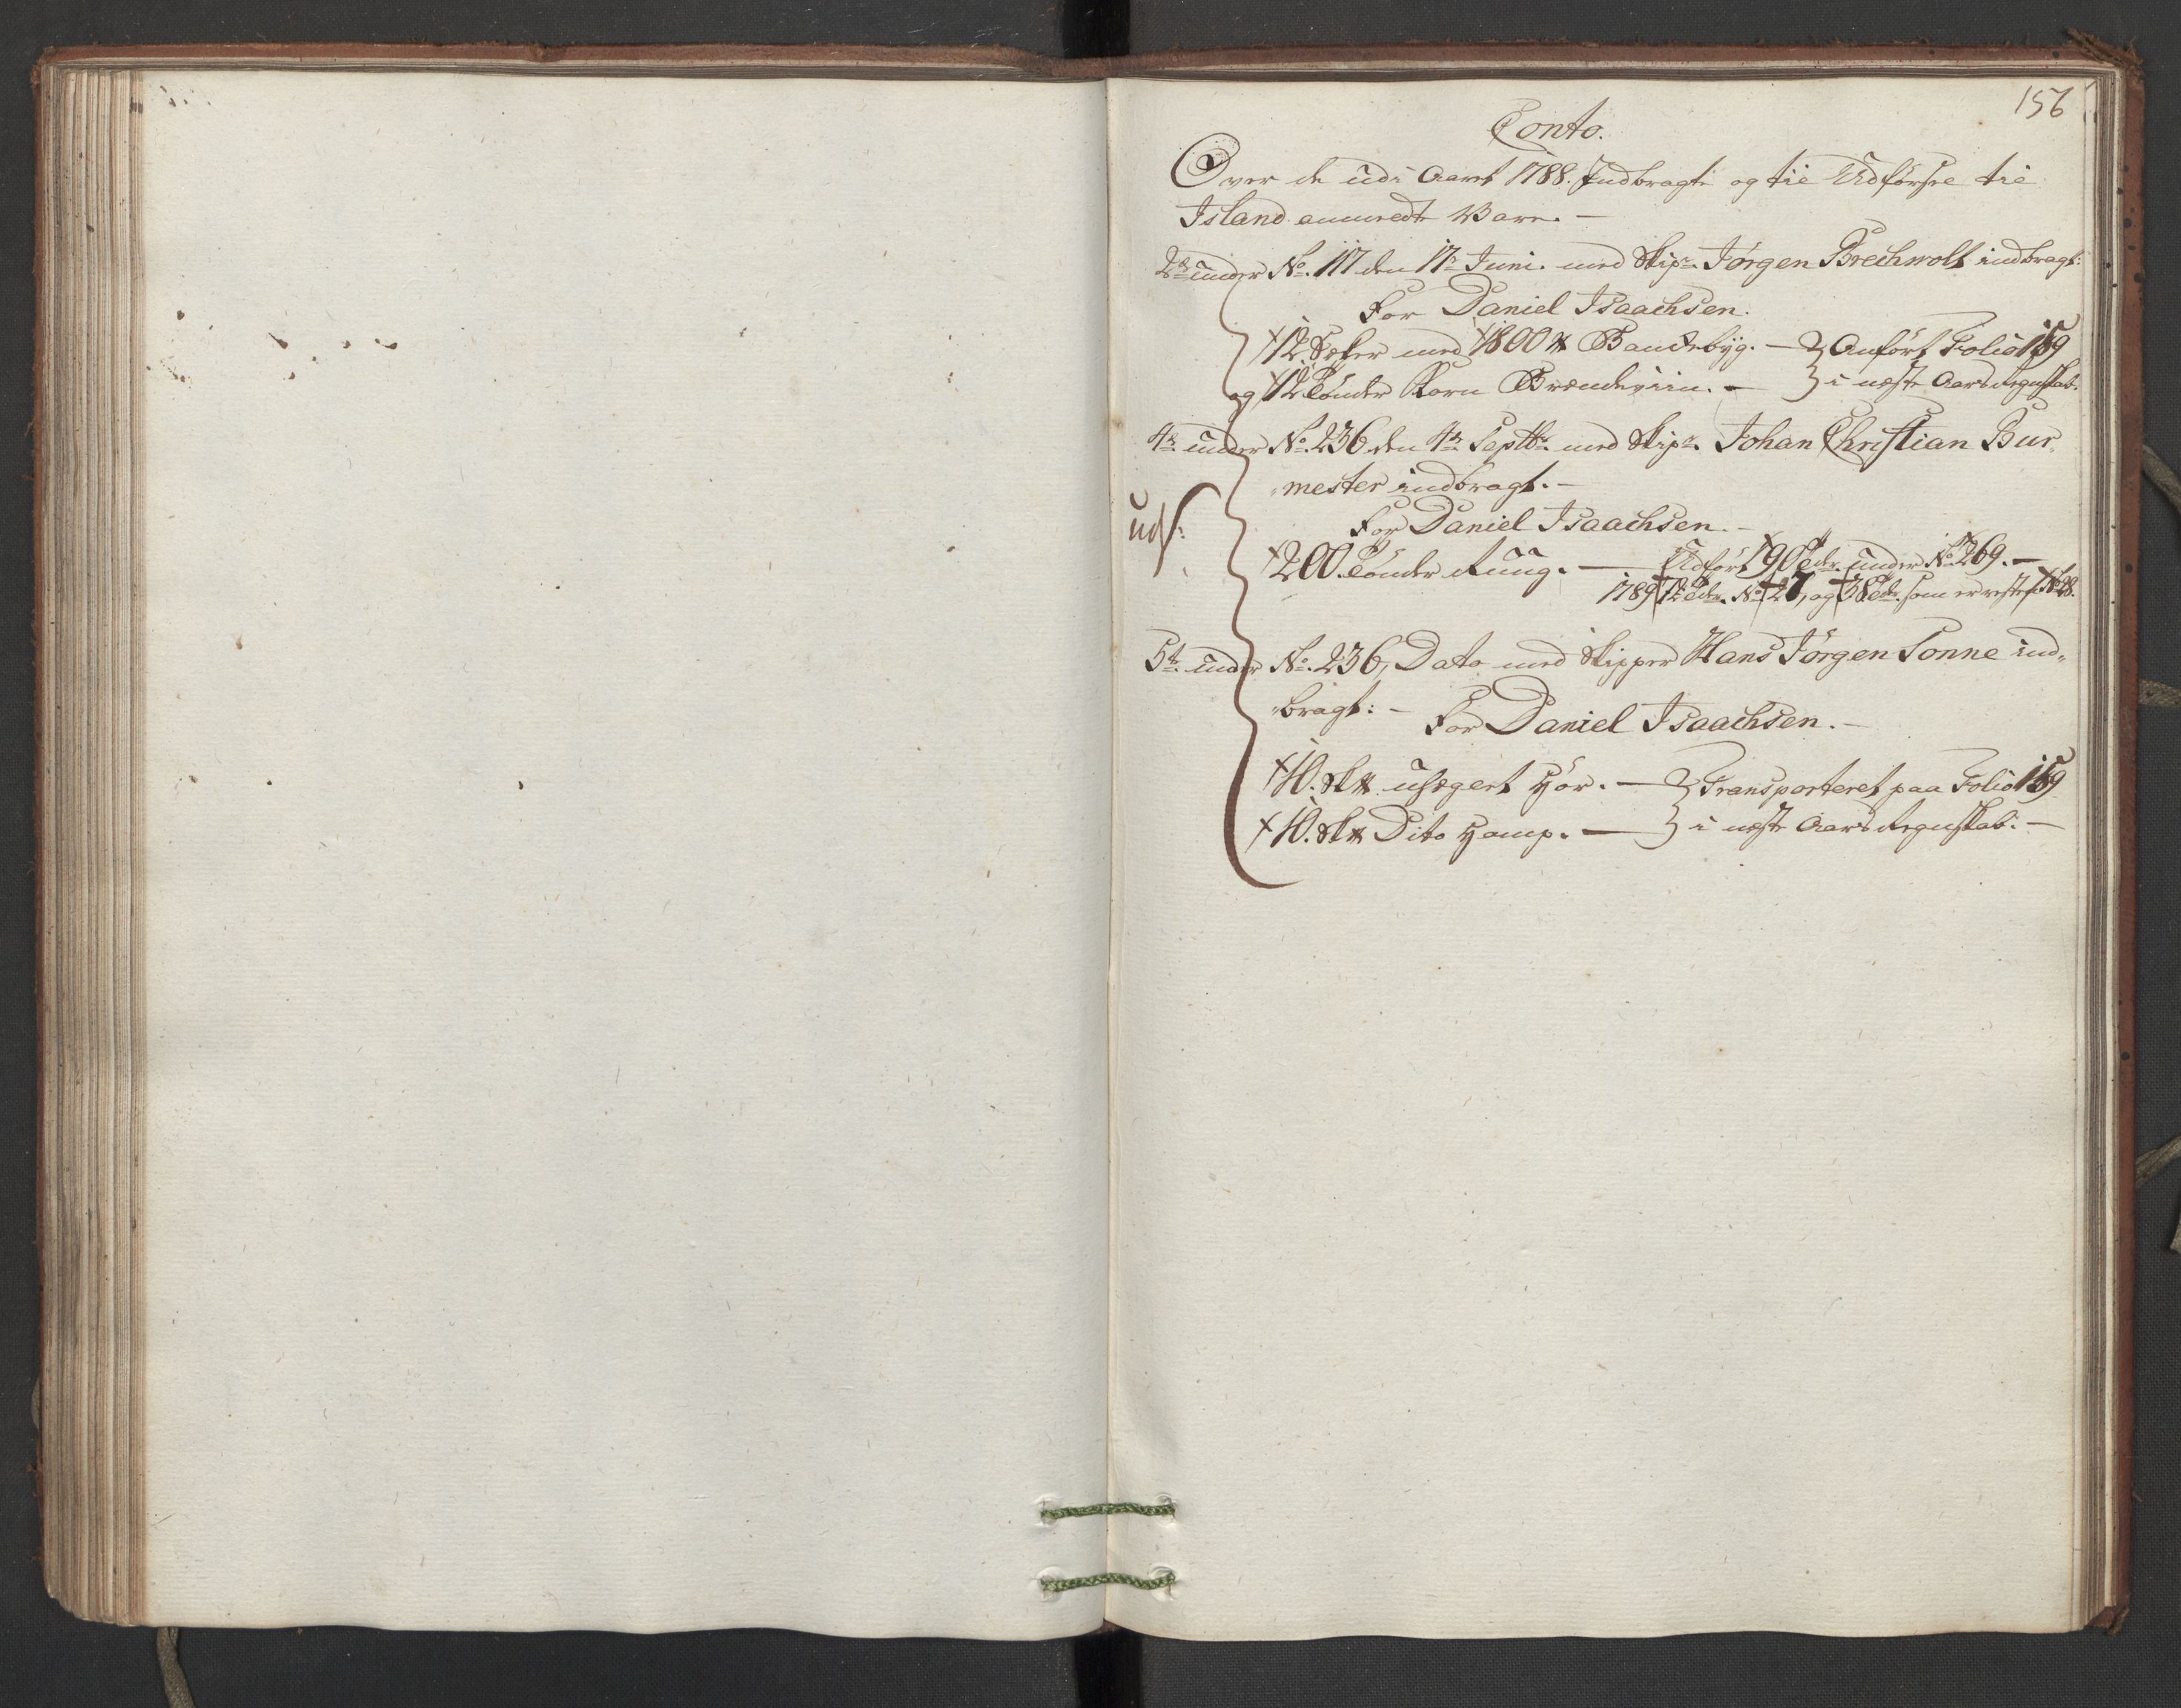 156
Conto.
Over de udi Aaret 1788. Indbragte og til Udførsel til
Island anmeldte Vare. —
2de under No. 117 den 17de Juni. med Skipr. Jørgen Brechwolt indbragt:
For Daniel Isaachsen.
12 Sekker med 1800 ℔ Bankebyg. — Anført Folio 159
og 12 Tønder Korn Brændeviin. — i næste Aars Regnskab.
4de under No. 236 den 4de Septbr. med Skipr. Johan Christian Bur-
mester indbragt. —
For Daniel Isaachsen. —
udf:
200 Tønder Rúúg. — Udført 90 Tdr. under No. 269. —
1789 72 Tdr. No. 27, og 38 Tdr. som er resten No. 28.
5te under No. 236, Dato med Skipper Hans Jørgen Sonne ind-
bragt: — For Daniel Isaachsen. —
10. Sk℔ uhegert Hør. — Transporteret paa Folio 159
10. Sk℔ Dito Hamp. — i næste Aars Regnskab. —